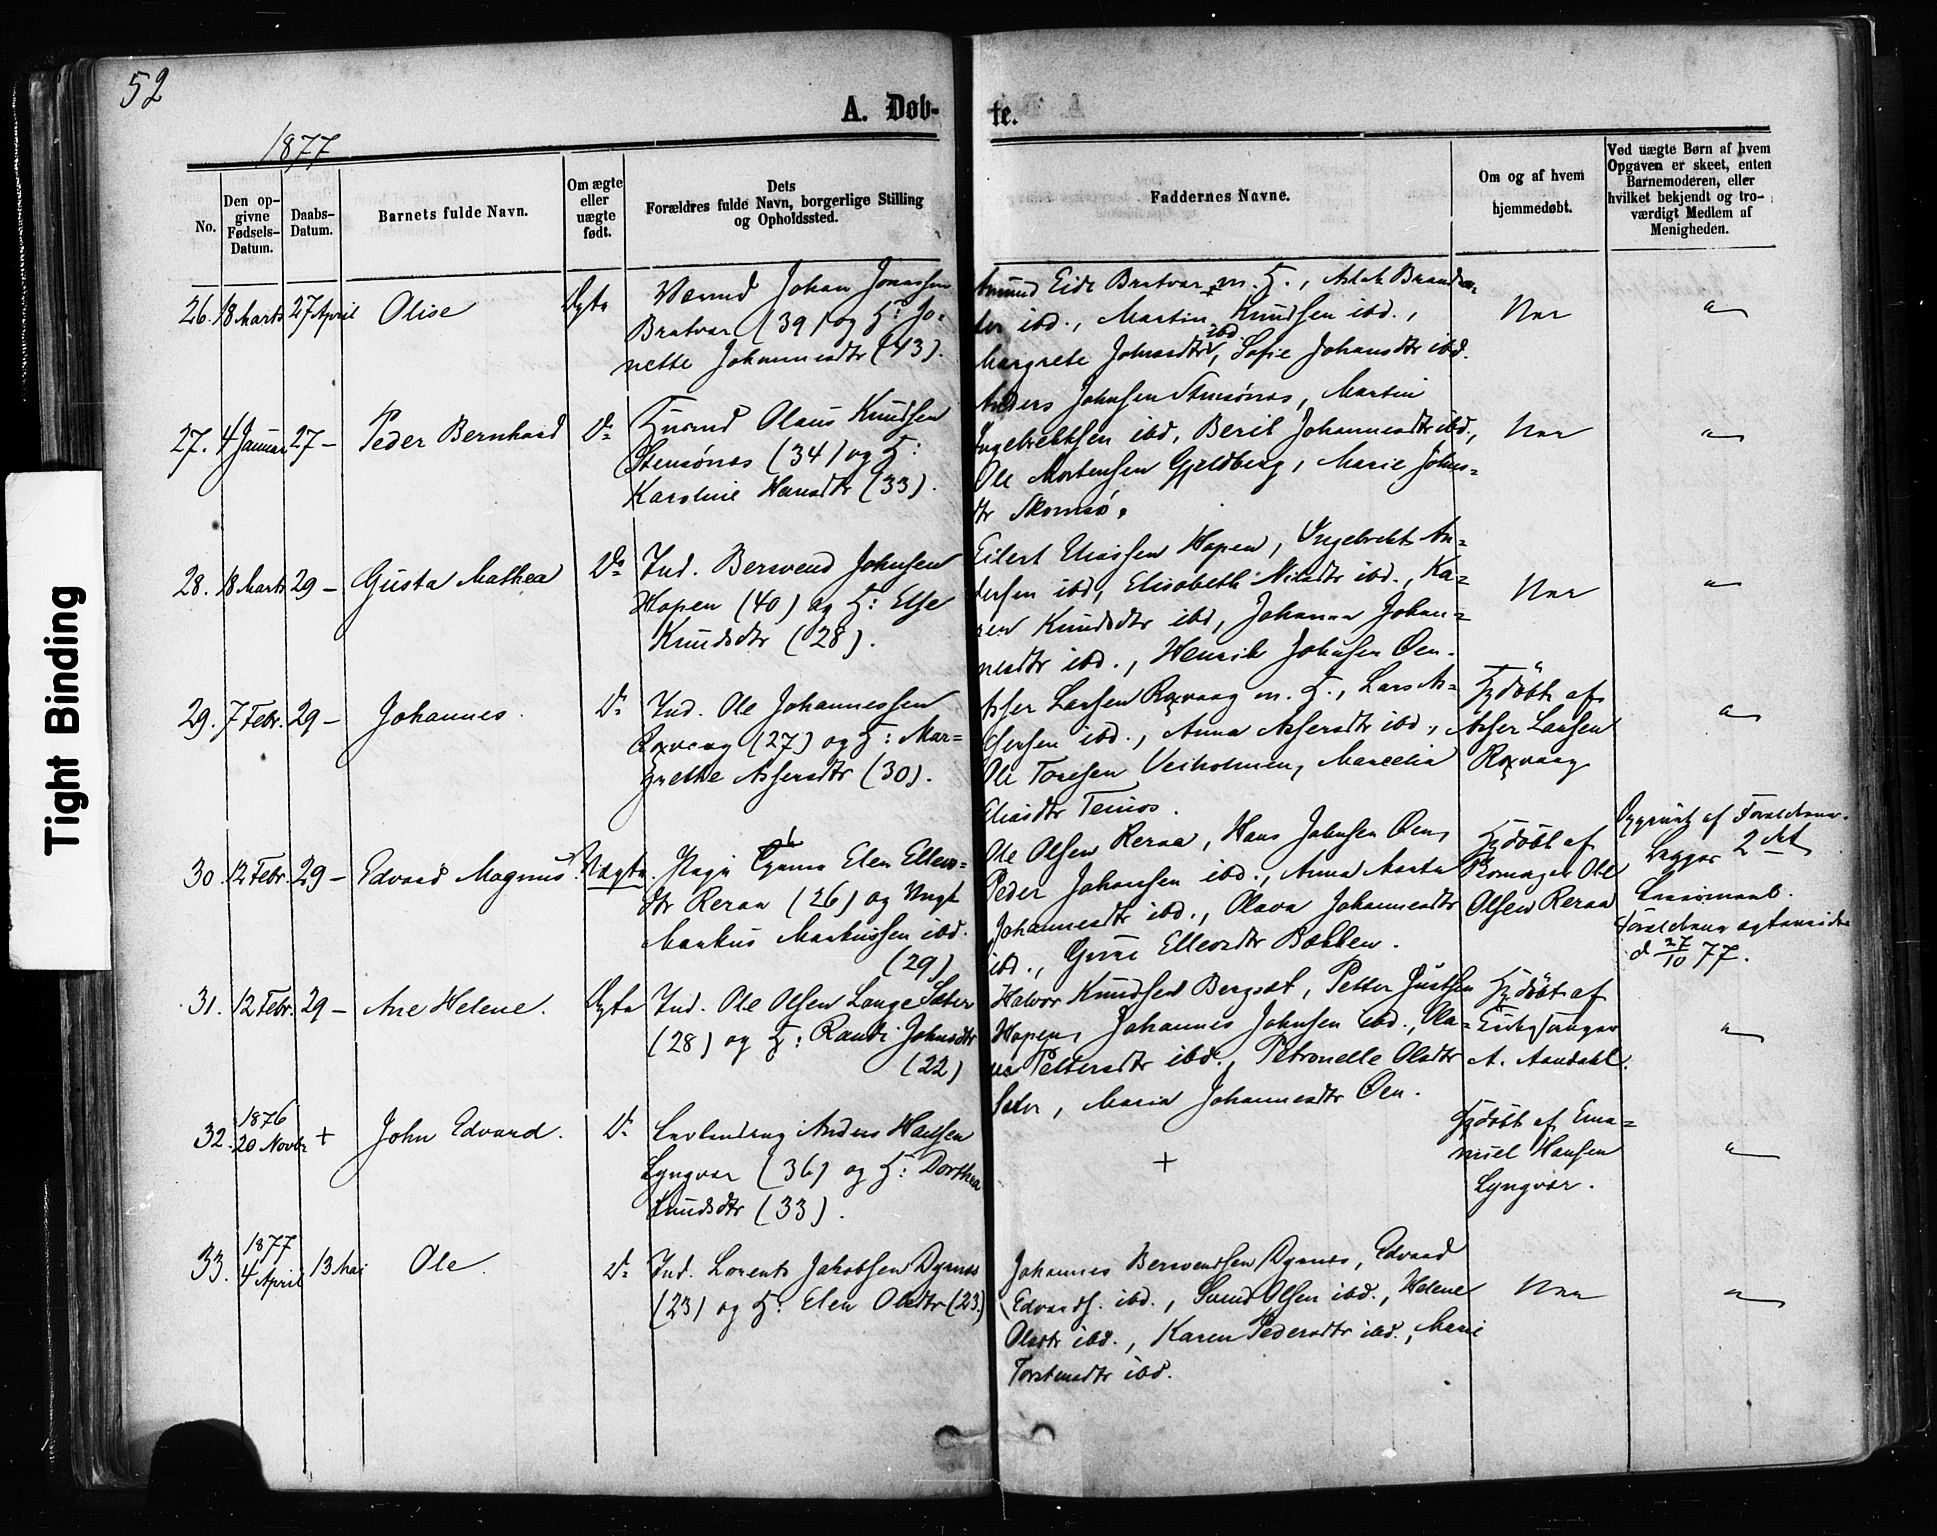 52
A. Døb-
te.
1877
No.
Den op-
givne
Fødsels-
Datum.
Daabs-
Datum.
Barnets fulde Navn.
Om ægte
eller
uægte
født.
Dets
Forældres fulde Navn, borgerlige Stilling
og Opholdssted.
Faddernes Navne.
Om og af hvem
hjemmedøbt.
Ved uægte Børn af hvem
Opgaven er skeet, enten
Barnemoderen, eller
hvilket bekjendt og tro-
værdigt Medlem af
Menigheden.
26. 18 Marts 27 April Olise Ægte
Johan Jonassen
Bratvær (39) og H: Jo-
nette Johannesdtr (43).
Eide Bratvær m. H.,
ibd., Martin Knudsen ibd.,
Margrete ibd., Sofie Johansdtr ibd.
Nei
"
27. 4 Januar 27 – Peder Bernhard Do
Husmd Olaus Knudsen
Stensønes (34) og H:
Karoline Hansdtr (33).
Anders Johnsen Stensønes, Martin
Ingebrektsen ibd., Berit Johannesdtr ibd.,
Ole Mortensen Gjeldberg, Marie Johns-
dtr Skomsø.
Nei
"
28. 18 Marts 29 – Gusta Mathea Do
Ind. Bersvend Johnsen
Hopen (40) og H: Else
Knudsdtr (28).
Eilert Eliassen Hopen, Ingebrekt An-
dersen ibd., Elisabeth Nilsdtr ibd., Ka-
ren Knudsdtr ibd., Johanna Johan-
nesdtr ibd., Henrik Johnsen Øen.
Nei
"
29. 7 Febr. 29 – Johannes. Do
Ind. Ole Johannessen
Roxvaag (27) og H: Mar-
grethe Assersdtr (30).
Asser Larsen Roxvaag m. H., Lars As-
sersen ibd., Anna Assersdtr ibd.,
Ole Toresen Veiholmen, Marcelia
Eliasdtr Teinos.
Hjdøbt af
Asser Larsen
Roxvaag
"
30. 12 Febr. 29 – Edvard Magnus. Uægte.
Pige Elen Ellevs-
dtr Reraa (26) og Ungk
Markus Markussen ibd.
(29)
Ole Olsen Reraa, Hans Johnsen Øen,
Peder Johansen ibd., Anna Aarta
Johannesdtr ibd., Olava Johannesdtr
ibd., Gurine Ellevsdtr Bakken.
Hjdøbt af
Ole
Olsen Reraa
af Forældrene.
Begges 2det
Leiermaal.
Forældrene
d 27/10 77.
31. 12 Febr. 29 – Ane Helene. Ægte
Ind. Ole Olsen Lange Sæter
(28) og H: Randi Johnsdtr
(22)
Halvor Knudsen Bergsæt, Petter Justsen
Hopen, Johannes Johnsen ibd., Ola-
va Pettersdtr ibd., Petronelle Olsdtr
Sæter, Maria Johannesdtr Øen.
Hjdøbt af
Kirkesanger
A. Aandahl.
"
32. 1876
20 Novbr + John Edvard. Do
Anders Hansen
Lyngvær (36) og H: Dorthea
Knudsdtr (33).
+
Hjdøbt af Ema-
nuel Hansen
Lyngvær.
"
33. 1877
4 April 13 Mai Ole. Do
Ind. Lorents Jakobsen Dyrnes
(23) og H: Elen Olsdtr (23.)
Johannes Bersvendsen Dyrnes, Edvard
Edvards. ibd., Svend Olsen ibd., Helene
Olsdtr ibd., Karen Pedersdtr ibd., Marie
Torstensdtr ibd.
Nei
"
Tight Binding